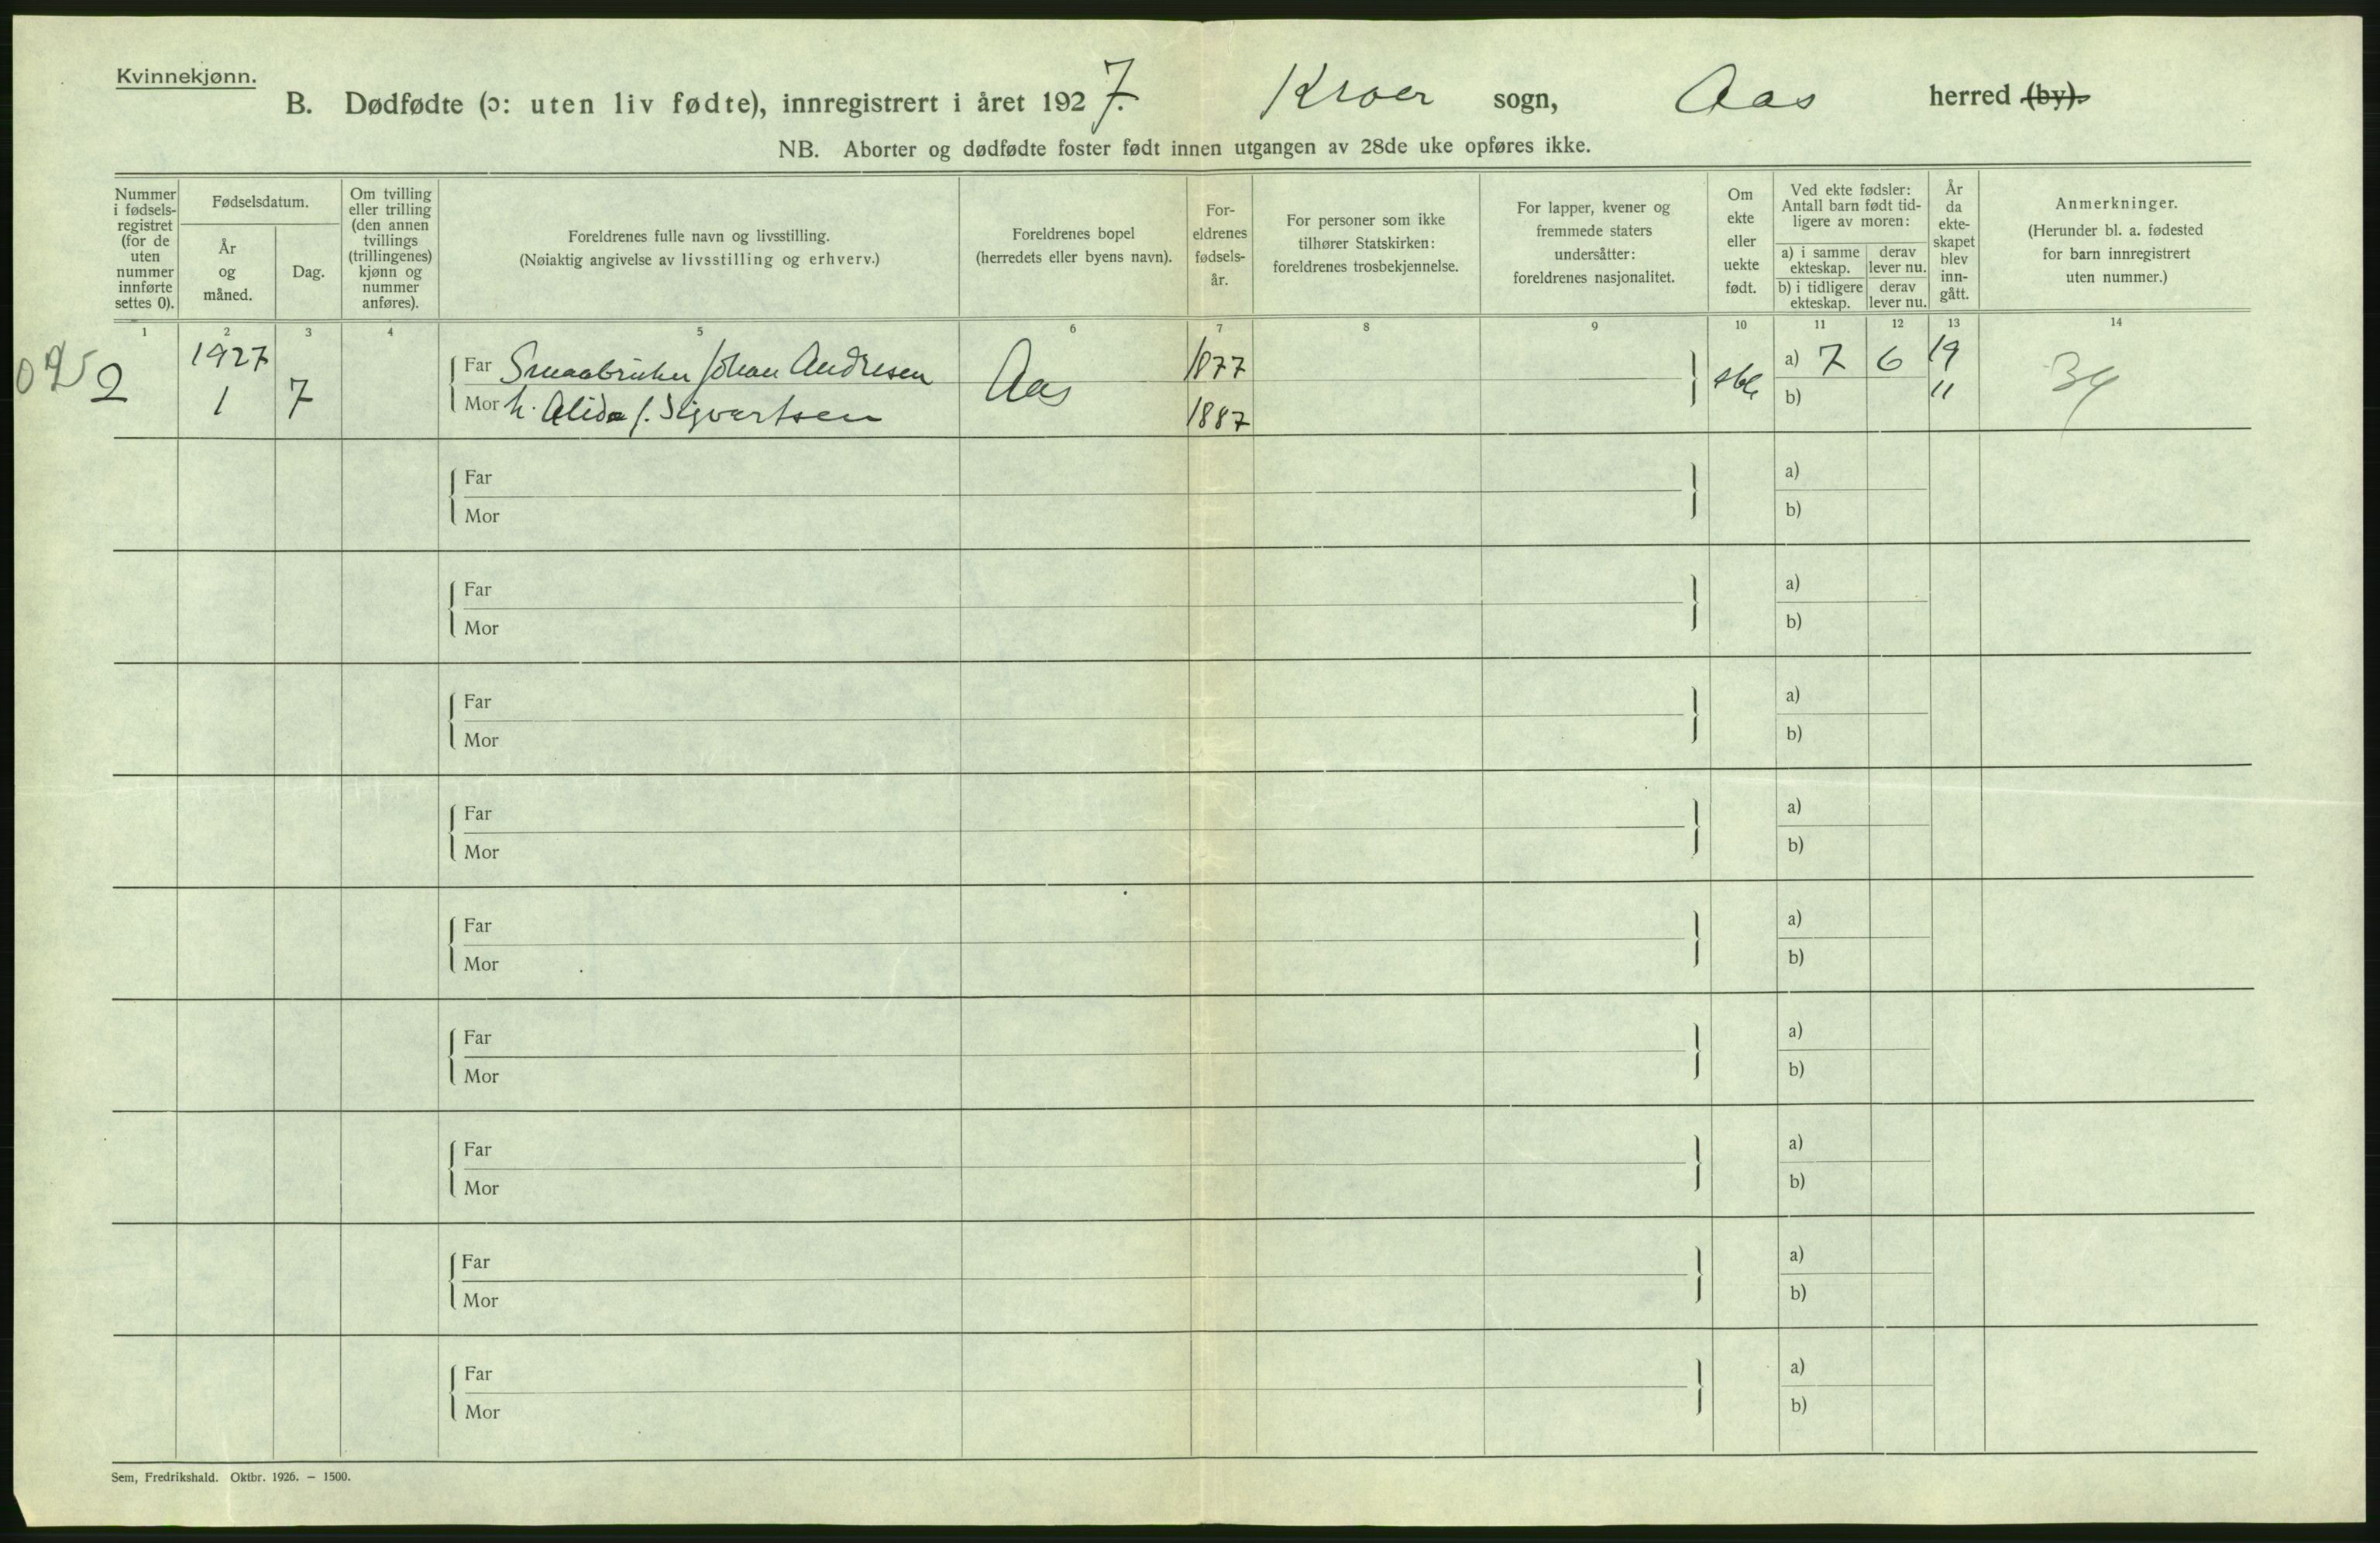 Kvinnekjønn.
B. Dødfødte (ɔ: uten liv fødte), innregistrert i året 1927. Kroer sogn, Aas herred (by).
NB. Aborter og dødfødte foster født innen utgangen av 28de uke opføres ikke.
Nummer i fødsels-registret (for de uten nummer innførte settes 0).
Fødselsdatum.
År og måned.
Dag.
Om tvilling eller trilling (den annen tvillings (trillingenes) kjønn og nummer anføres).
Foreldrenes fulle navn og livsstilling.
(Nøiaktig angivelse av livsstilling og erhverv.)
Foreldrenes bopel
(herredets eller byens navn).
For-eldrenes fødsels-år.
For personer som ikke tilhører Statskirken: foreldrenes trosbekjennelse.
For lapper, kvener og fremmede staters undersåtter: foreldrenes nasjonalitet.
Om ekte eller uekte født.
Ved ekte fødsler: Antall barn født tid-ligere av moren:
a) i samme ekteskap.
derav lever nu.
b) i tidligere ekteskap.
derav lever nu.
År da ekte-skapet blev inn-gått.
Anmerkninger.
(Herunder bl. a. fødested for barn innregistrert uten nummer.)
1 2 3 4 5 6 7 8 9 10 11 12 13 14
2 1927 1 7
Far Smaabruker Johan Andresen Aas 1877
Mor h. Alida f. Sigvartsen 1887
a) 7 6 19
b) 11
34
Far a)
Mor b)
Far a)
Mor b)
Far a)
Mor b)
Far a)
Mor b)
Far a)
Mor b)
Far a)
Mor b)
Far a)
Mor b)
Far a)
Mor b)
Far a)
Mor b)
Sem, Fredrikshald. Oktbr. 1926. — 1500.